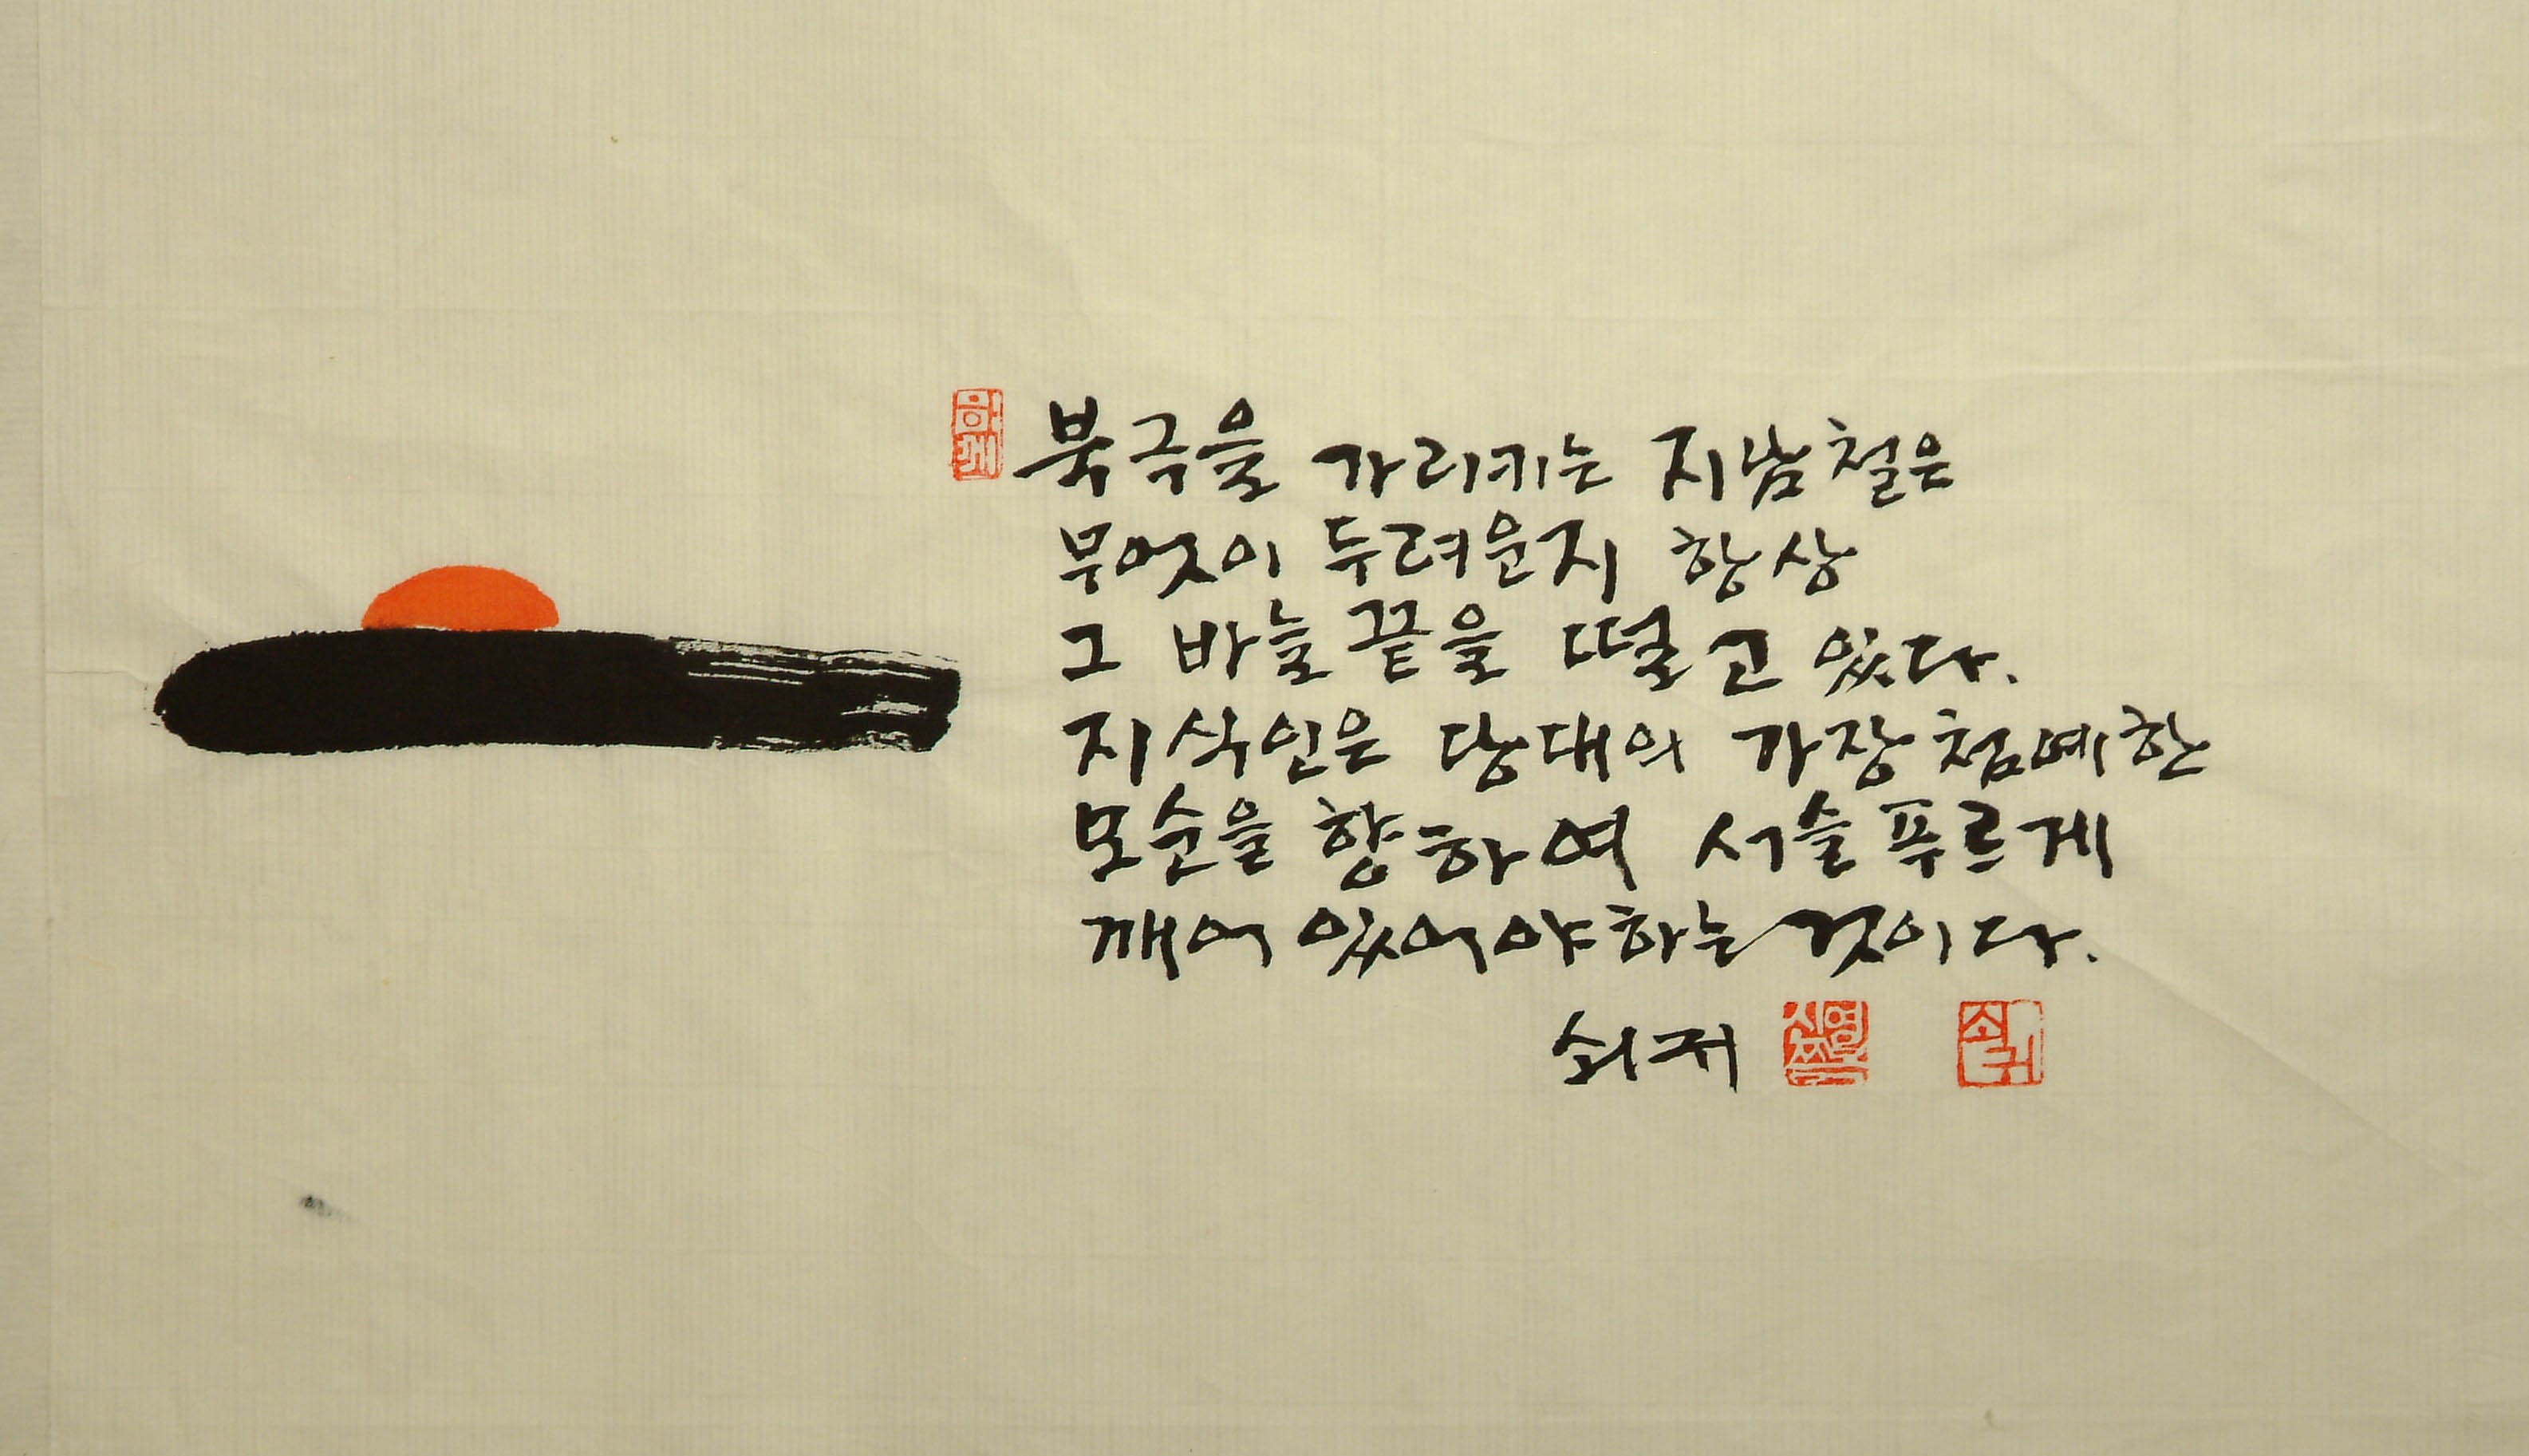 함께
북극을 가리키는 지남철은
무엇이 두려운지 항상
그 바늘끝을 떨고 있다.
지식인은 당대의 가장 첨예한
모순을 향하여 서슬푸르게
깨어 있어야하는 것이다.
쇠귀